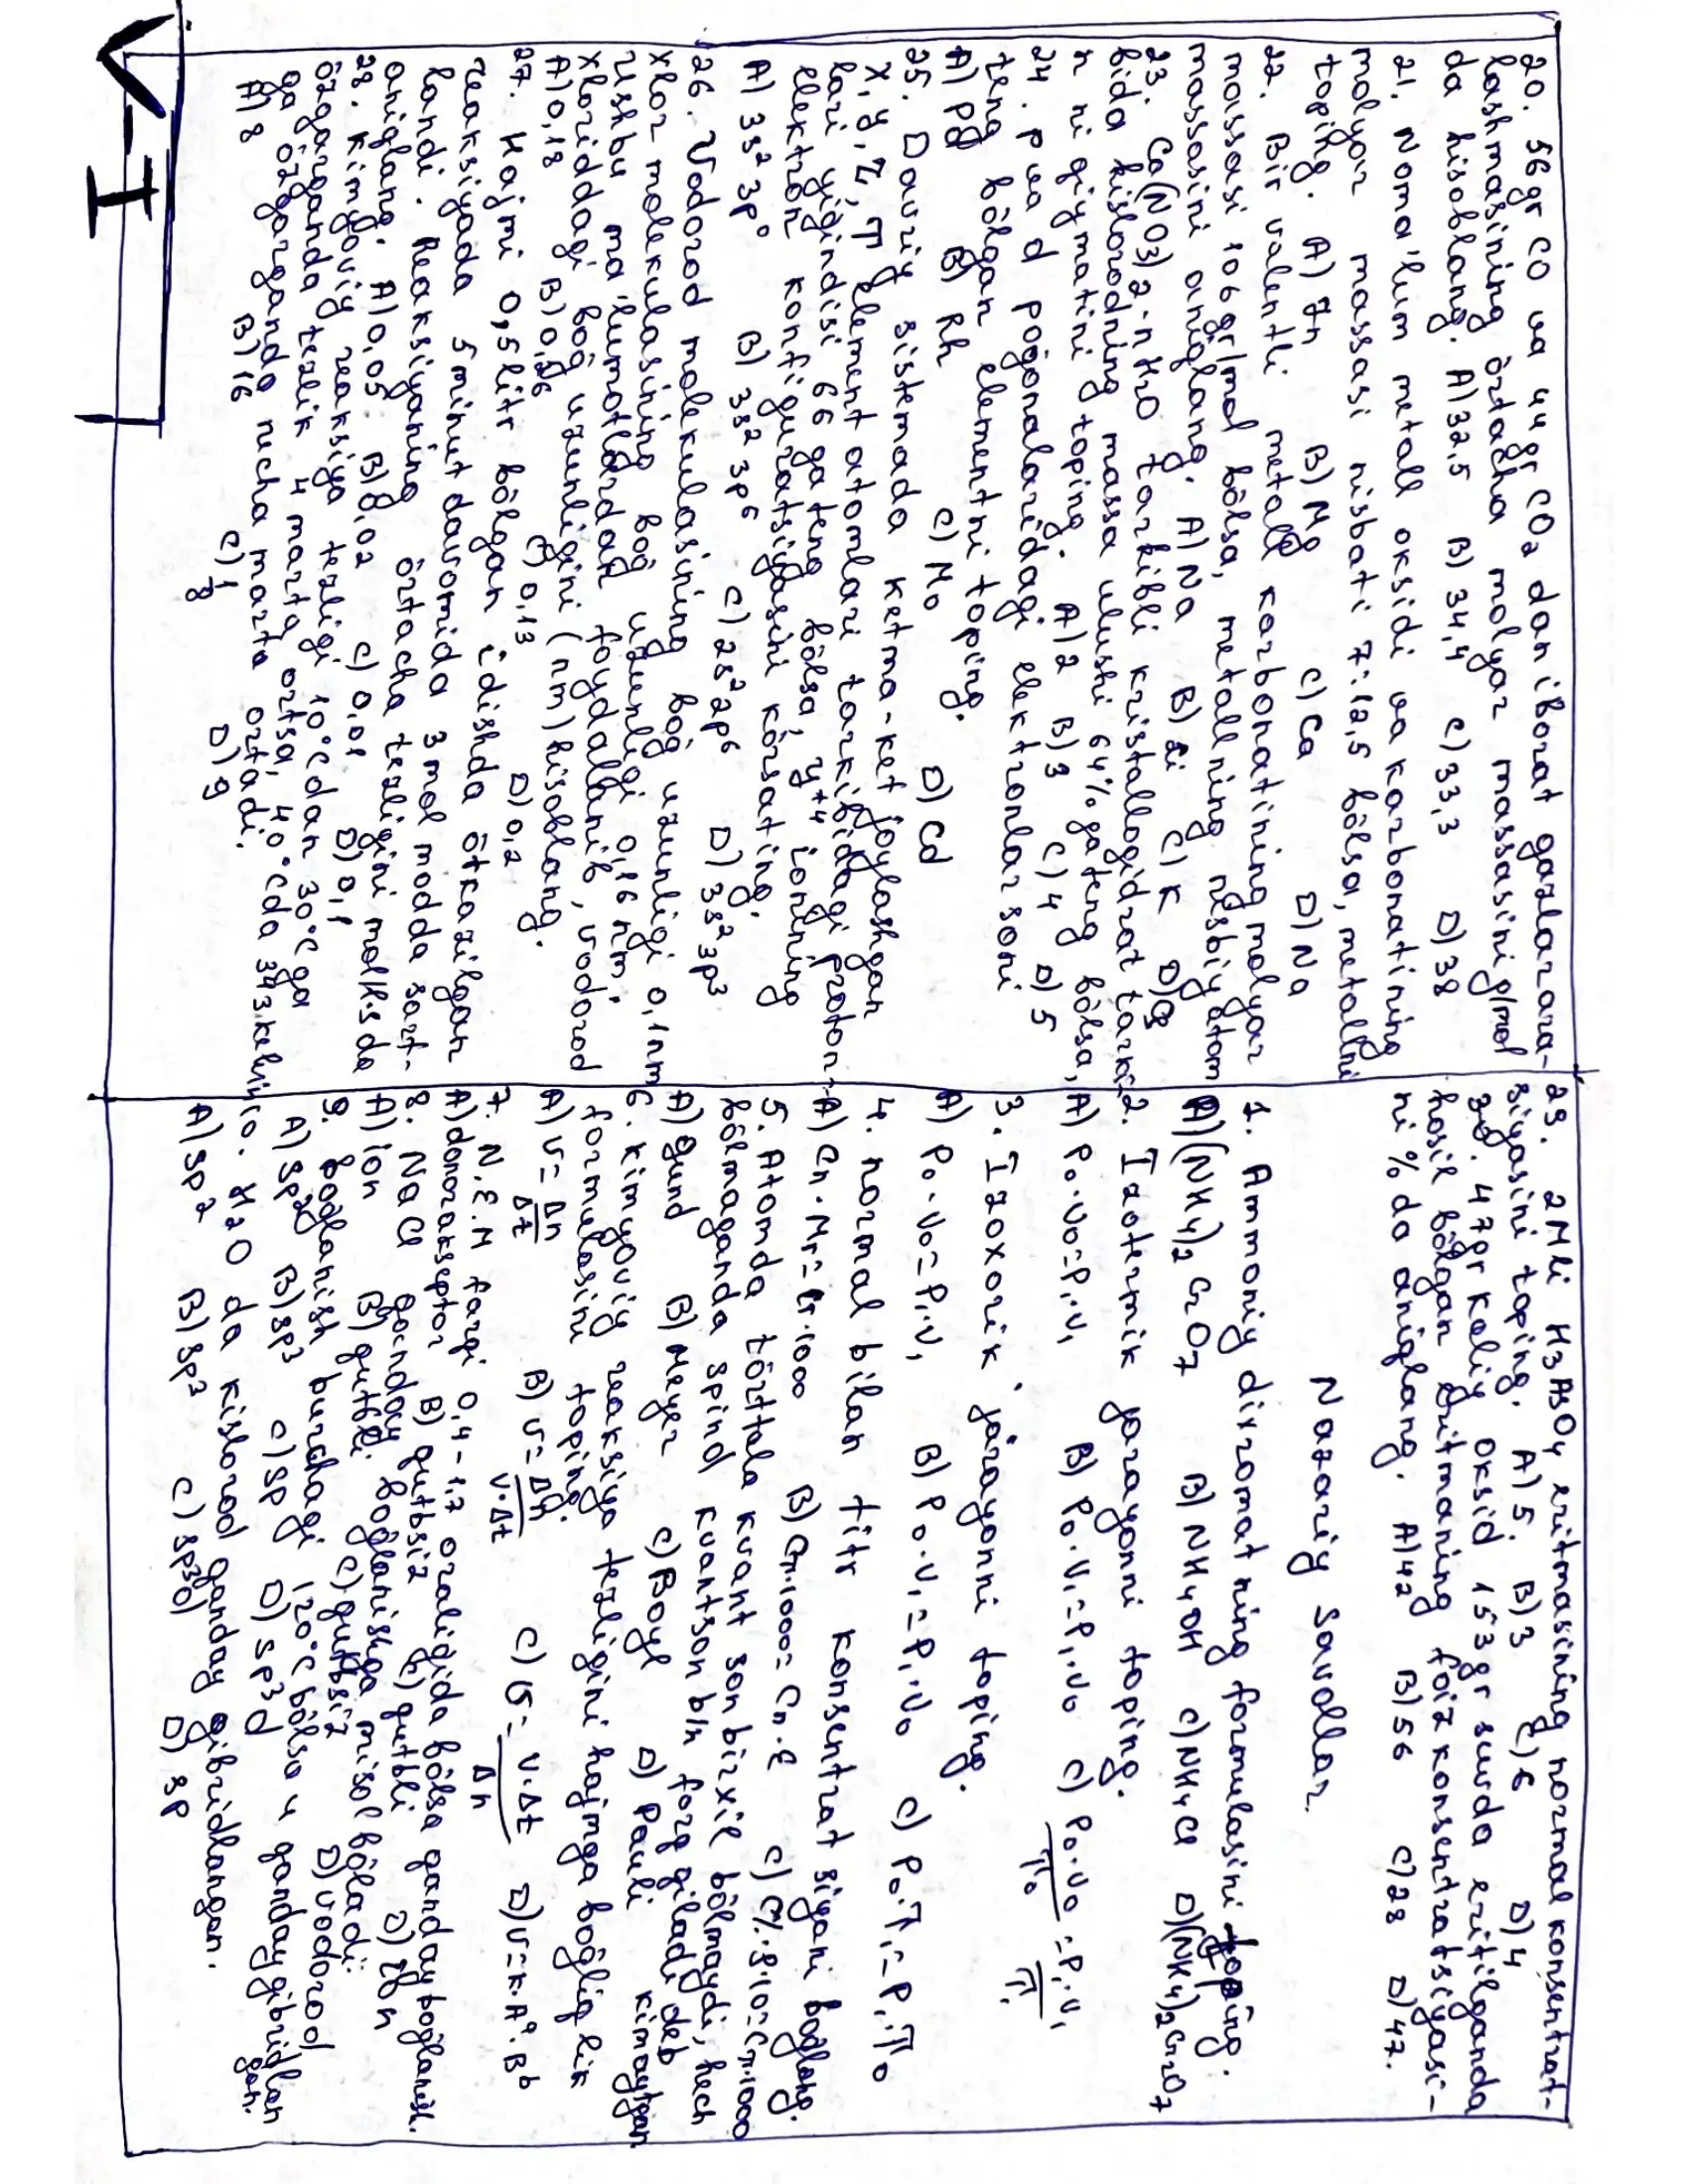 20. 56gr CO va 44gr CO2 dan iborat gazlar ara-
lashmasining o'rtacha molyar massasini g/mol
da hisoblang. A) 32,5 B) 34,4 C) 33,3 D) 38
21. Noma'lum metall oksidi va karbonatining
molyar massasi nisbati 7:12,5 bo'lsa, metallni
toping. A) Zn B) Mg C) Ca D) Na
22. Bir valentli metall karbonatining molyar
massasi 106 gr/mol bo'lsa, metallning nisbiy atom
massasini aniqlang. A) Na B) Li C) K D)
23. Ca(NO3)2·nH2O tarkibli kristallogidrat tarki-
bida kislorodning massa ulushi 64% ga teng bo'lsa,
n ni qiymatini toping. A) 2 B) 3 C) 4 D) 5
24. p va d pog'onalaridagi elektronlar soni
teng bo'lgan elementni toping.
A) Pd B) Rh C) Mo D) Cd
25. Davriy sistemada ketma-ket joylashgan
X, Y, Z, T element atomlari tarkibidagi proton-
lari yig'indisi 66 ga teng bo'lsa, y+4 ionning
elektron konfiguratsiyasini ko'rsating.
A) 3s2 3p0 B) 3s2 3p6 C) 2s2 2p6 D) 3s2 3p3
26. Vodorod molekulasining bog' uzunligi 0,1nm
xlor molekulasining bog' uzunligi 0,16 nm.
Ushbu ma'lumotlardan foydallanib, vodorod
xloriddagi bog' uzunligini (nm) hisoblang.
A) 0,18 B) 0,26 C) 0,13 D) 0,2
27. Hajmi 0,5 litr bo'lgan idishda o'tkazilgan
reaksiyada 5 minut davomida 3 mol modda sarf-
landi. Reaksiyaning o'rtacha tezligini mol/l·s da
aniqlang. A) 0,05 B) 0,02 C) 0,01 D) 0,1
28. Kimyoviy reaksiya tezligi 10°C dan 30°C ga
o'zgarganda tezlik 4 marta ortsa, 40°C da 343 kelvin
ga o'zgarganda necha marta ortadi.
A) 8 B) 16 C) 1/8 D) 9
V-I
29. 2M li H3AsO4 eritmasining normal konsentrat-
siyasini toping. A) 5. B) 3 C) 6 D) 4
30. 47gr kaliy oksid 153gr suvda eritilganda
hosil bo'lgan eritmaning foiz konsentratsiyasi-
ni % da aniqlang. A) 42 B) 56 C) 28 D) 47.
Nazariy Savollar.
1. Ammoniy dixromatning formulasini toping.
A) (NH4)2 CrO7 B) NH4OH C) NH4Cl D) (NH4)2Cr2O7
2. Izotermik jarayonni toping.
A) P0·V0=P1·V1 B) P0·V1=P1·V0 C) P0·V0/T0 = P1·V1/T1
3. Izoxorik jarayonni toping.
A) P0·V0=P1·V1 B) P0·V1=P1·V0 C) P0·T1=P1·T0
4. normal bilan titr konsentratsiyani bog'lang.
A) Cn·Mr=Cт·1000 B) Cт·1000=Cn·E C) C%·ρ·10=Cт·1000
5. Atomda to'rttala kvant son bir xil bo'lmaydi, hech
bo'lmaganda spind kvantson b/n farq qiladi deb
A) Gund B) Meyer C) Boyl D) Pauli kim aytgan
6. Kimyoviy reaksiya tezligini hajmga bog'liqlik
formulasini toping.
A) V= Δn/Δt B) V= Δn/V·Δt C) υ= V·Δt/Δn D) V=K·Aª·Bᵇ
7. N.E.M farqi 0,4-1,7 oraligida bo'lsa qanday bog'lanish.
A) donorakseptor B) qutbsiz C) qutbli D) ion
8. NaCl qanday bog'lanishga misol bo'ladi.
A) ion B) qutbli C) qutbsiz D) vodorod
9. Bog'lanish burchagi 120°C bo'lsa u qanday gibridlan
gan.
A) sp2 B) sp3 C) sp D) sp3d
10. H2O da kislorod qanday gibridlangan.
A) sp2 B) sp3 C) sp3d D) sp